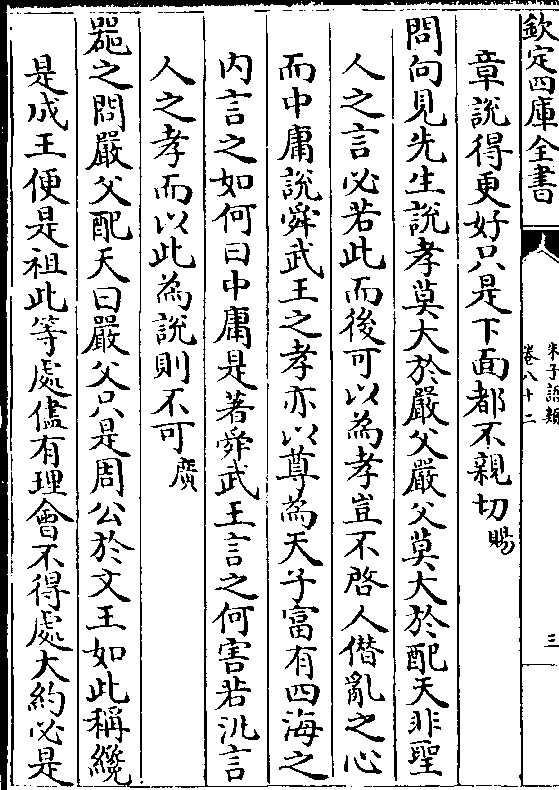 欽定四庫全書
朱子語類
卷八十二
三
章說得更好只是下面都不親切賜
問向見先生說孝莫大於嚴父嚴父莫大於配天非聖
人之言必若此而後可以為孝豈不啓人僭亂之心
而中庸說舜武王之孝亦以尊為天子富有四海之
内言之如何曰中庸是著舜武王言之何害若汎言
人之孝而以此為說則不可廣
器之問嚴父配天曰嚴父只是周公於文王如此稱纔
是成王便是祖此等處儘有理會不得處大約必是